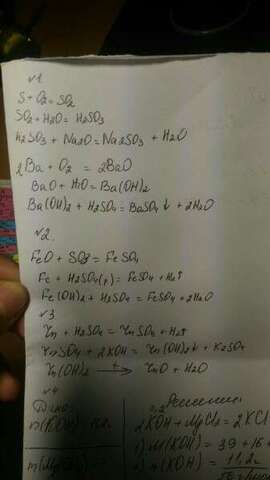 √1
S + O2 = SO2
SO2 + H2O = H2SO3
H2SO3 + Na2O = Na2SO3 + H2O
2Ba + O2 = 2BaO
BaO + H2O = Ba(OH)2
Ba(OH)2 + H2SO4 = BaSO4 ↓ + 2H2O
√2.
FeO + SO3 = FeSO4
Fe + H2SO4(р) = FeSO4 + H2↑
Fe(OH)2 + H2SO4 = FeSO4 + 2H2O
√3
Zn + H2SO4 = ZnSO4 + H2↑
ZnSO4 + 2KOH = Zn(OH)2↓ + K2SO4
Zn(OH)2 —t→ ZnO + H2O
√4
Дано:
m(KOH) =
m(MgCl2)
Решение:
2KOH + MgCl2 = 2KCl
1) M(KOH) = 39 + 16 +
n(KOH) = 11,2